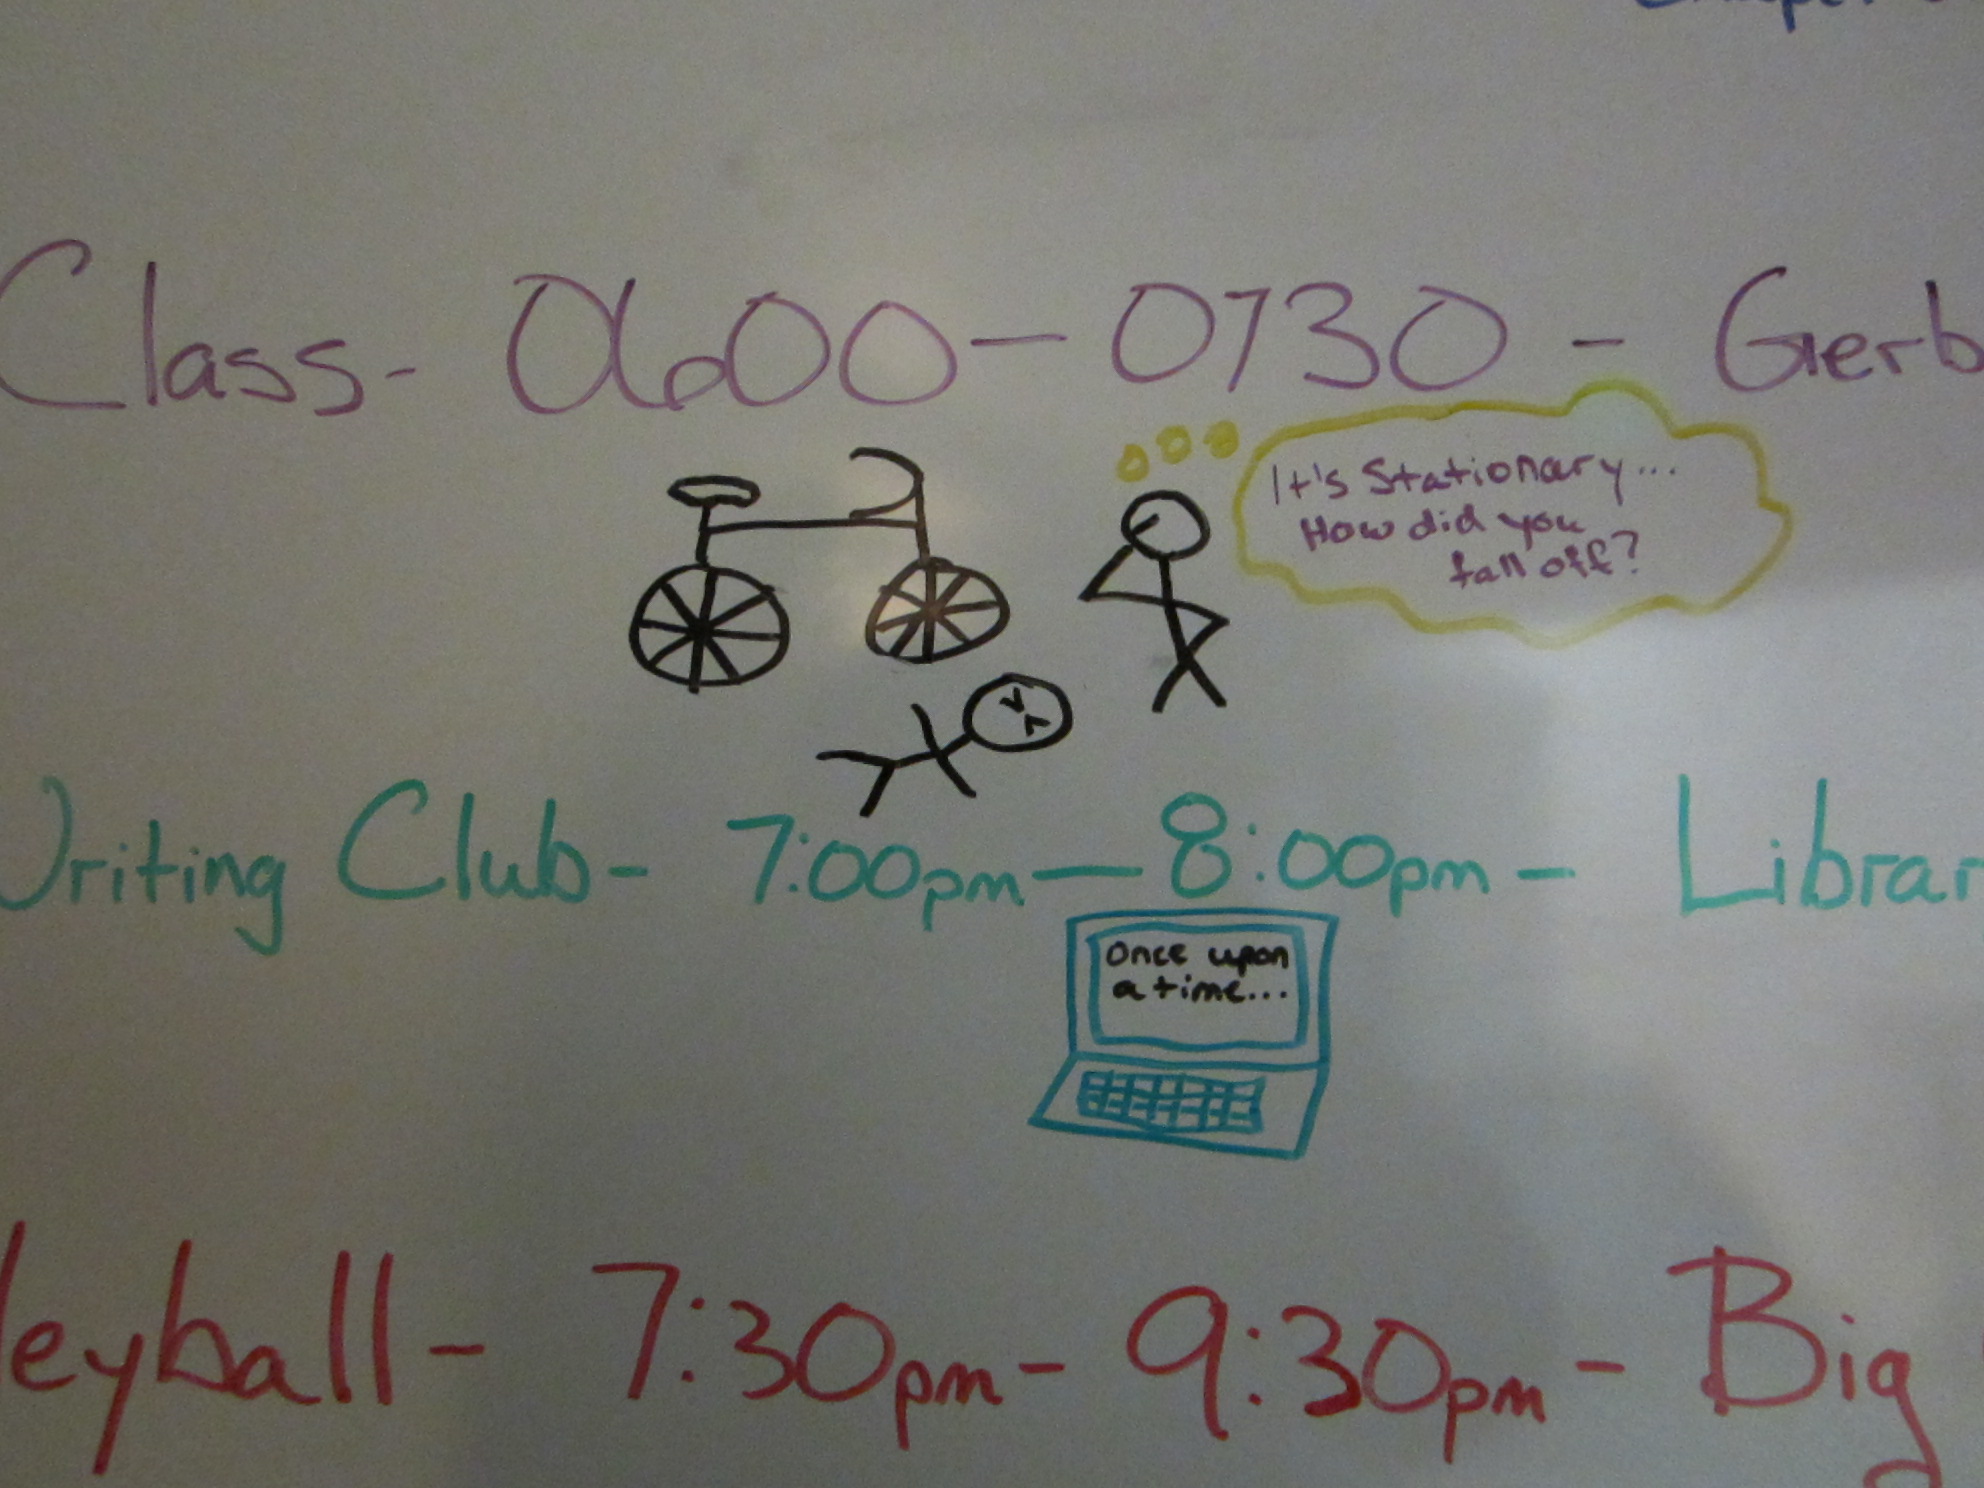 Class- 0600 - 0730 - Gerb
It's Stationary...
How did you
fall off?
Writing Club- 7:00pm - 8:00pm - Librar
Once upon
a time...
leyball - 7:30pm - 9:30pm - Big